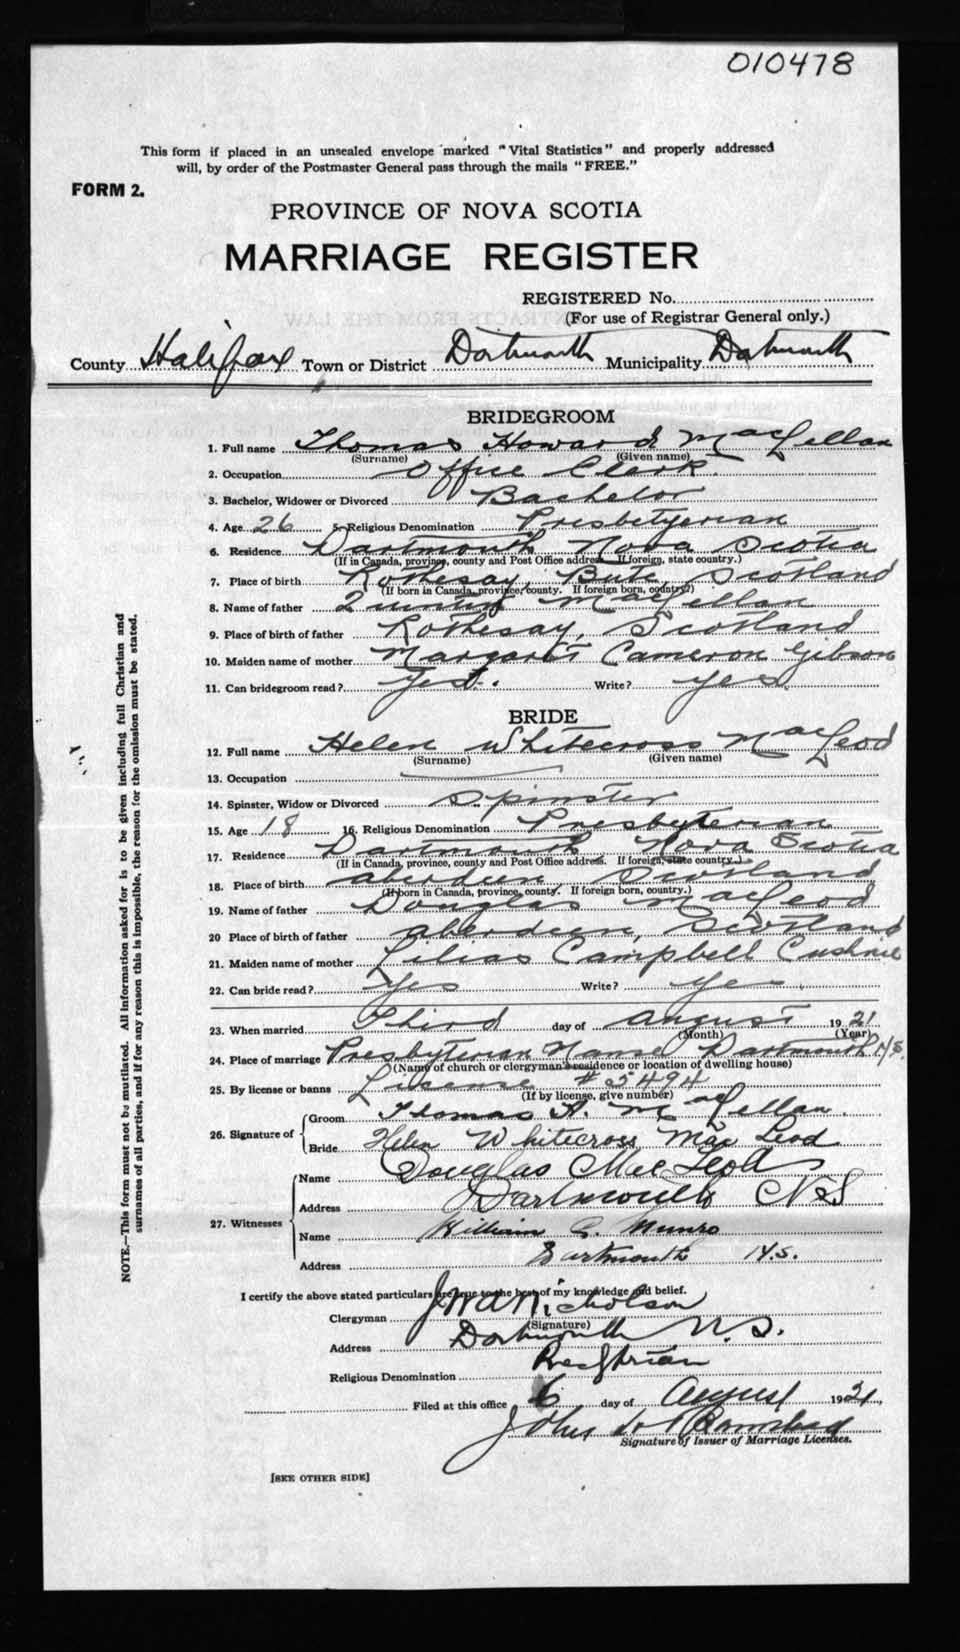 010478
This form if placed in an unsealed envelope marked "Vital Statistics" and properly addressed
will, by order of the Postmaster General pass through the mails "FREE."
FORM 2.
PROVINCE OF NOVA SCOTIA
MARRIAGE REGISTER
REGISTERED No.
(For use of Registrar General only.)
County Halifax Town or District Dartmouth Municipality Dartmouth
BRIDEGROOM
1. Full name Thomas Howard MacLellan
(Surname) (Given name)
2. Occupation Office Clerk.
3. Bachelor, Widower or Divorced Bachelor
4. Age 26 5. Religious Denomination Presbyterian
6. Residence Dartmouth Nova Scotia
(If in Canada, province, county and Post Office address. If foreign, state country.)
7. Place of birth Rothesay, Bute, Scotland
(If born in Canada, province, county. If foreign born, country?)
8. Name of father MacLellan
9. Place of birth of father Rothesay, Scotland
10. Maiden name of mother Margaret Cameron Gibson
11. Can bridegroom read? Yes. Write? yes
BRIDE
12. Full name Helen Whitecross MacLeod
(Surname) (Given name)
13. Occupation
14. Spinster, Widow or Divorced Spinster
15. Age 18 16. Religious Denomination Presbyterian
17. Residence Dartmouth Nova Scotia
(If in Canada, province, county and Post Office address. If foreign, state country.)
18. Place of birth aberdeen Scotland
(If born in Canada, province, county. If foreign born, country.)
19. Name of father Douglas MacLeod
20 Place of birth of father aberdeen, Scotland
21. Maiden name of mother Lilias Campbell Cushnie
22. Can bride read? Yes Write? yes.
23. When married Third day of august 1921
(Month) (Year)
24. Place of marriage Presbyterian Manse Dartmouth N.S.
(Name of church or clergyman's residence or location of dwelling house)
25. By license or banns License #5494
(If by license, give number)
26. Signature of Groom Thomas H. MacLellan.
Bride Helen Whitecross MacLeod
27. Witnesses Name Douglas MacLeod
Address Dartmouth NS
Name William G. Munro
Address Dartmouth N.S.
I certify the above stated particulars are true to the best of my knowledge and belief.
Clergyman Nicholson
(Signature)
Address Dartmouth N.S.
Religious Denomination
Filed at this office 6 day of August 1921
John
Signature of Issuer of Marriage Licenses.
[SEE OTHER SIDE]
NOTE.—This form must not be mutilated. All information asked for is to be given including full Christian and
surnames of all parties, and if for any reason this is impossible, the reason for the omission must be stated.